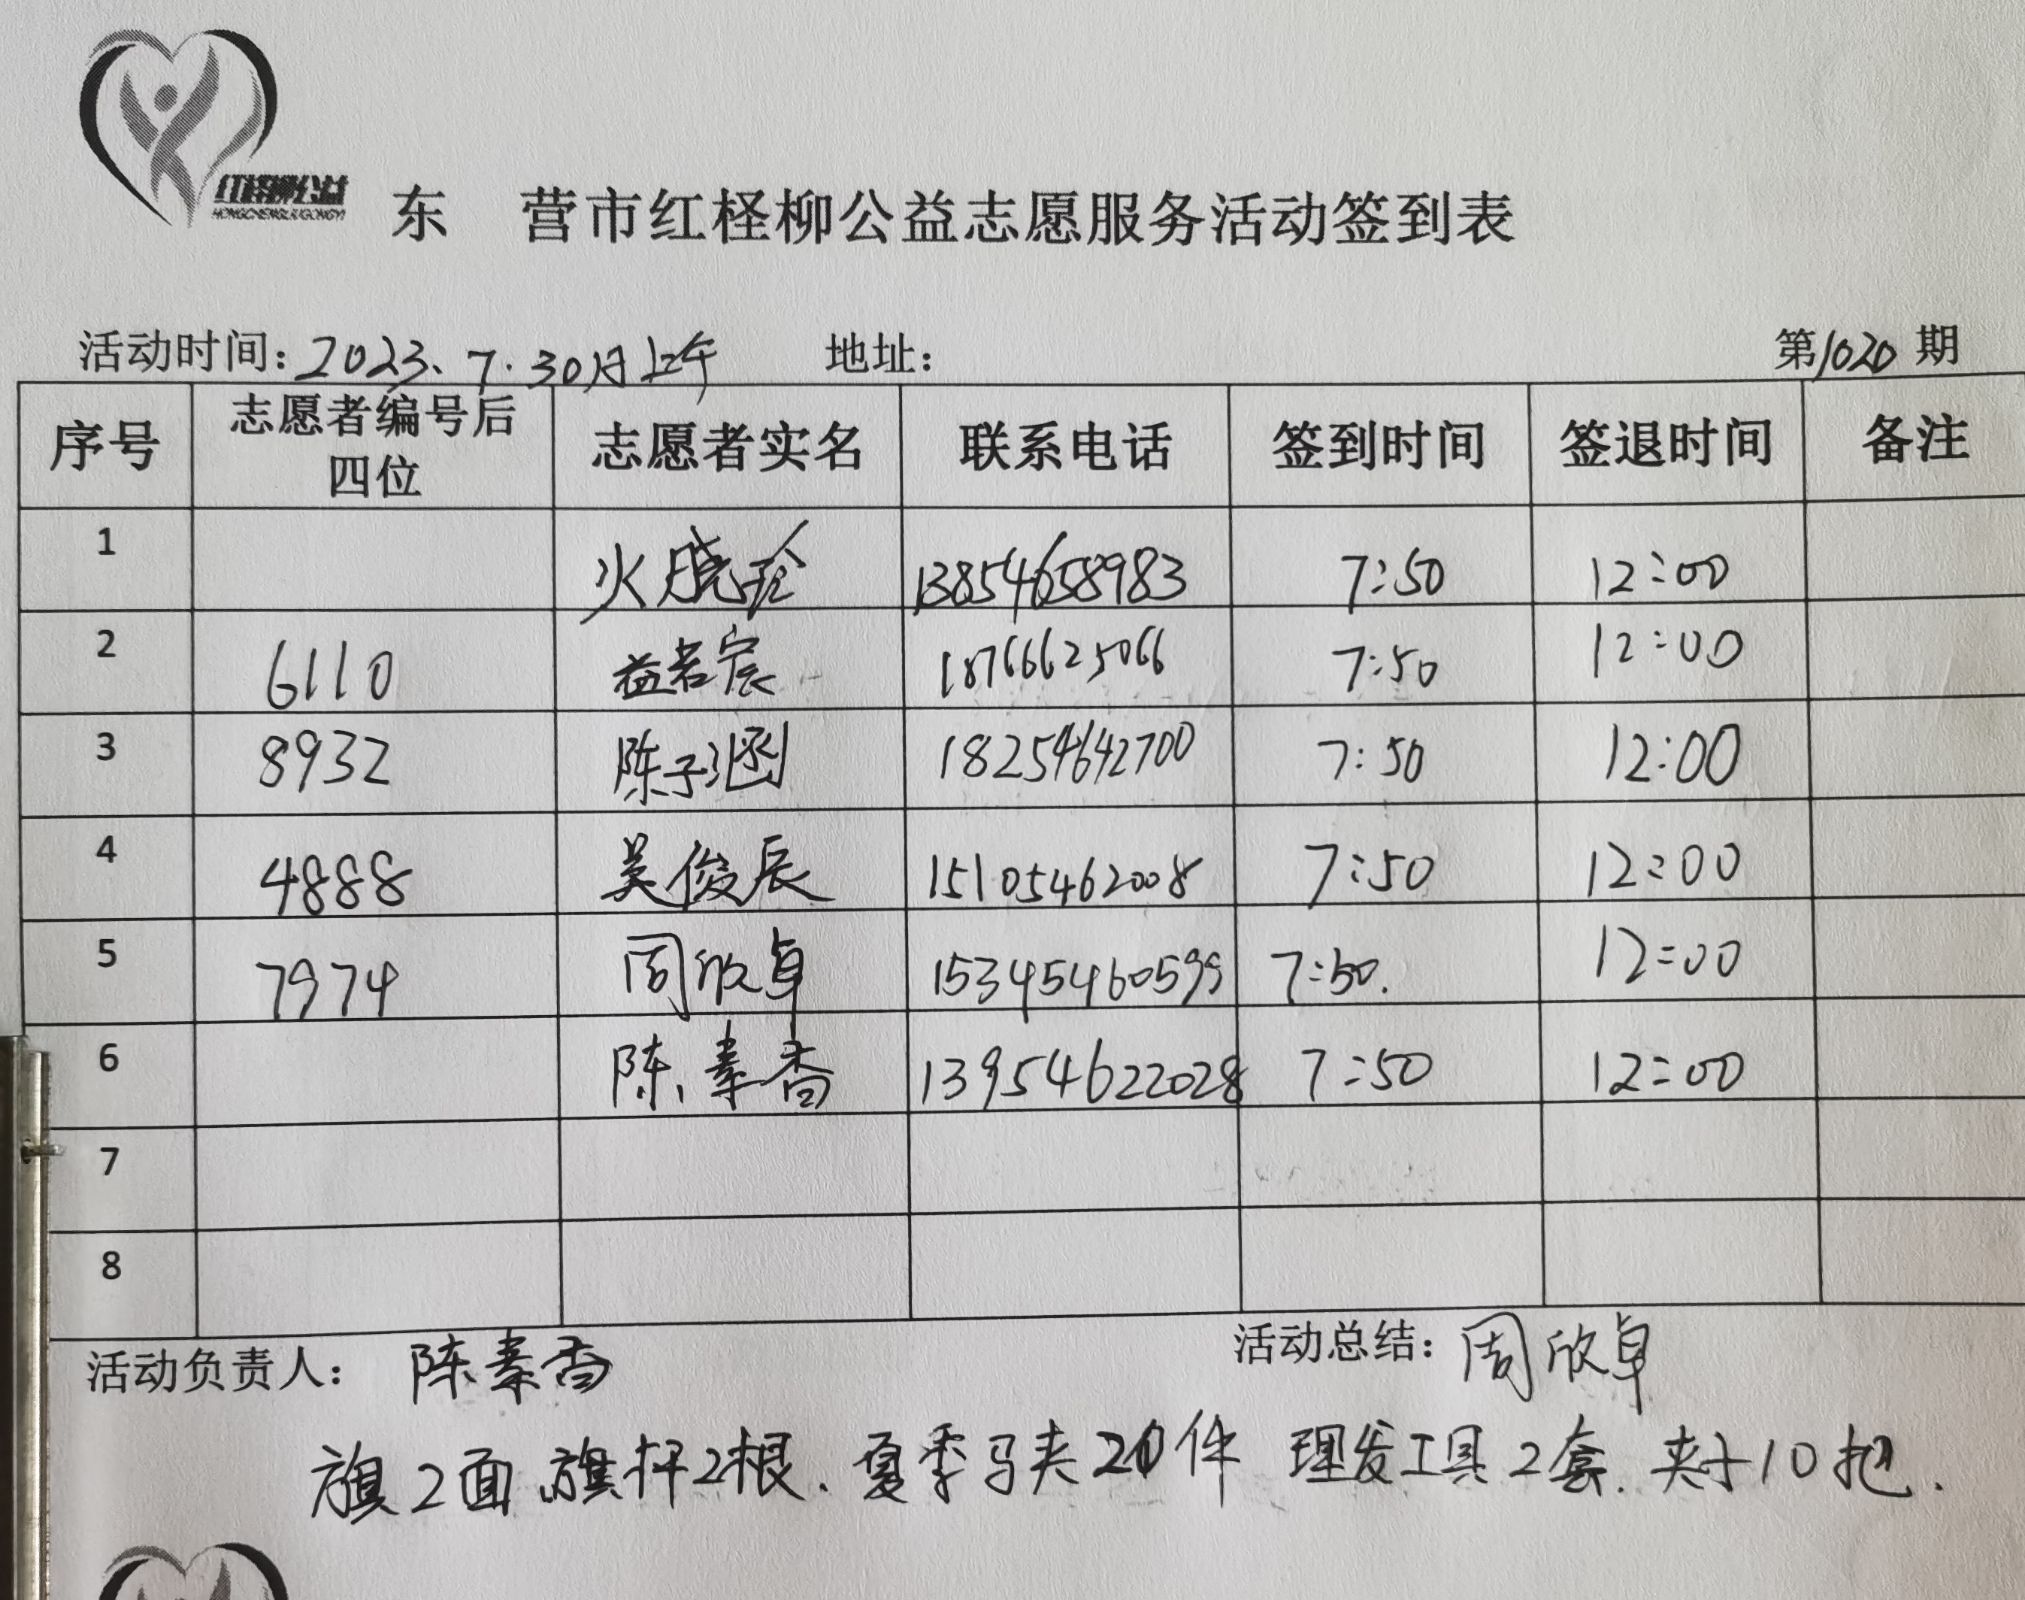 红柽柳公益
HONGCHENGLIUGONGYI
东 营市红柽柳公益志愿服务活动签到表
活动时间：2023、7.30日上午 地址： 第1020期
序号 志愿者编号后四位 志愿者实名 联系电话 签到时间 签退时间 备注
1 火晓玲 13854658983 7:50 12:00
2 6110 益若宸 18766625066 7:50 12:00
3 8932 陈子涵 18254642700 7:50 12:00
4 4888 吴俊辰 15105462008 7:50 12:00
5 7974 周欣卓 15345460599 7:50. 12:00
6 陈素香 13954622028 7:50 12:00
7
8
活动负责人： 陈素香 活动总结：周欣卓
旗2面、旗杆2根、夏季马夹20件 理发工具2套、夹子10把.